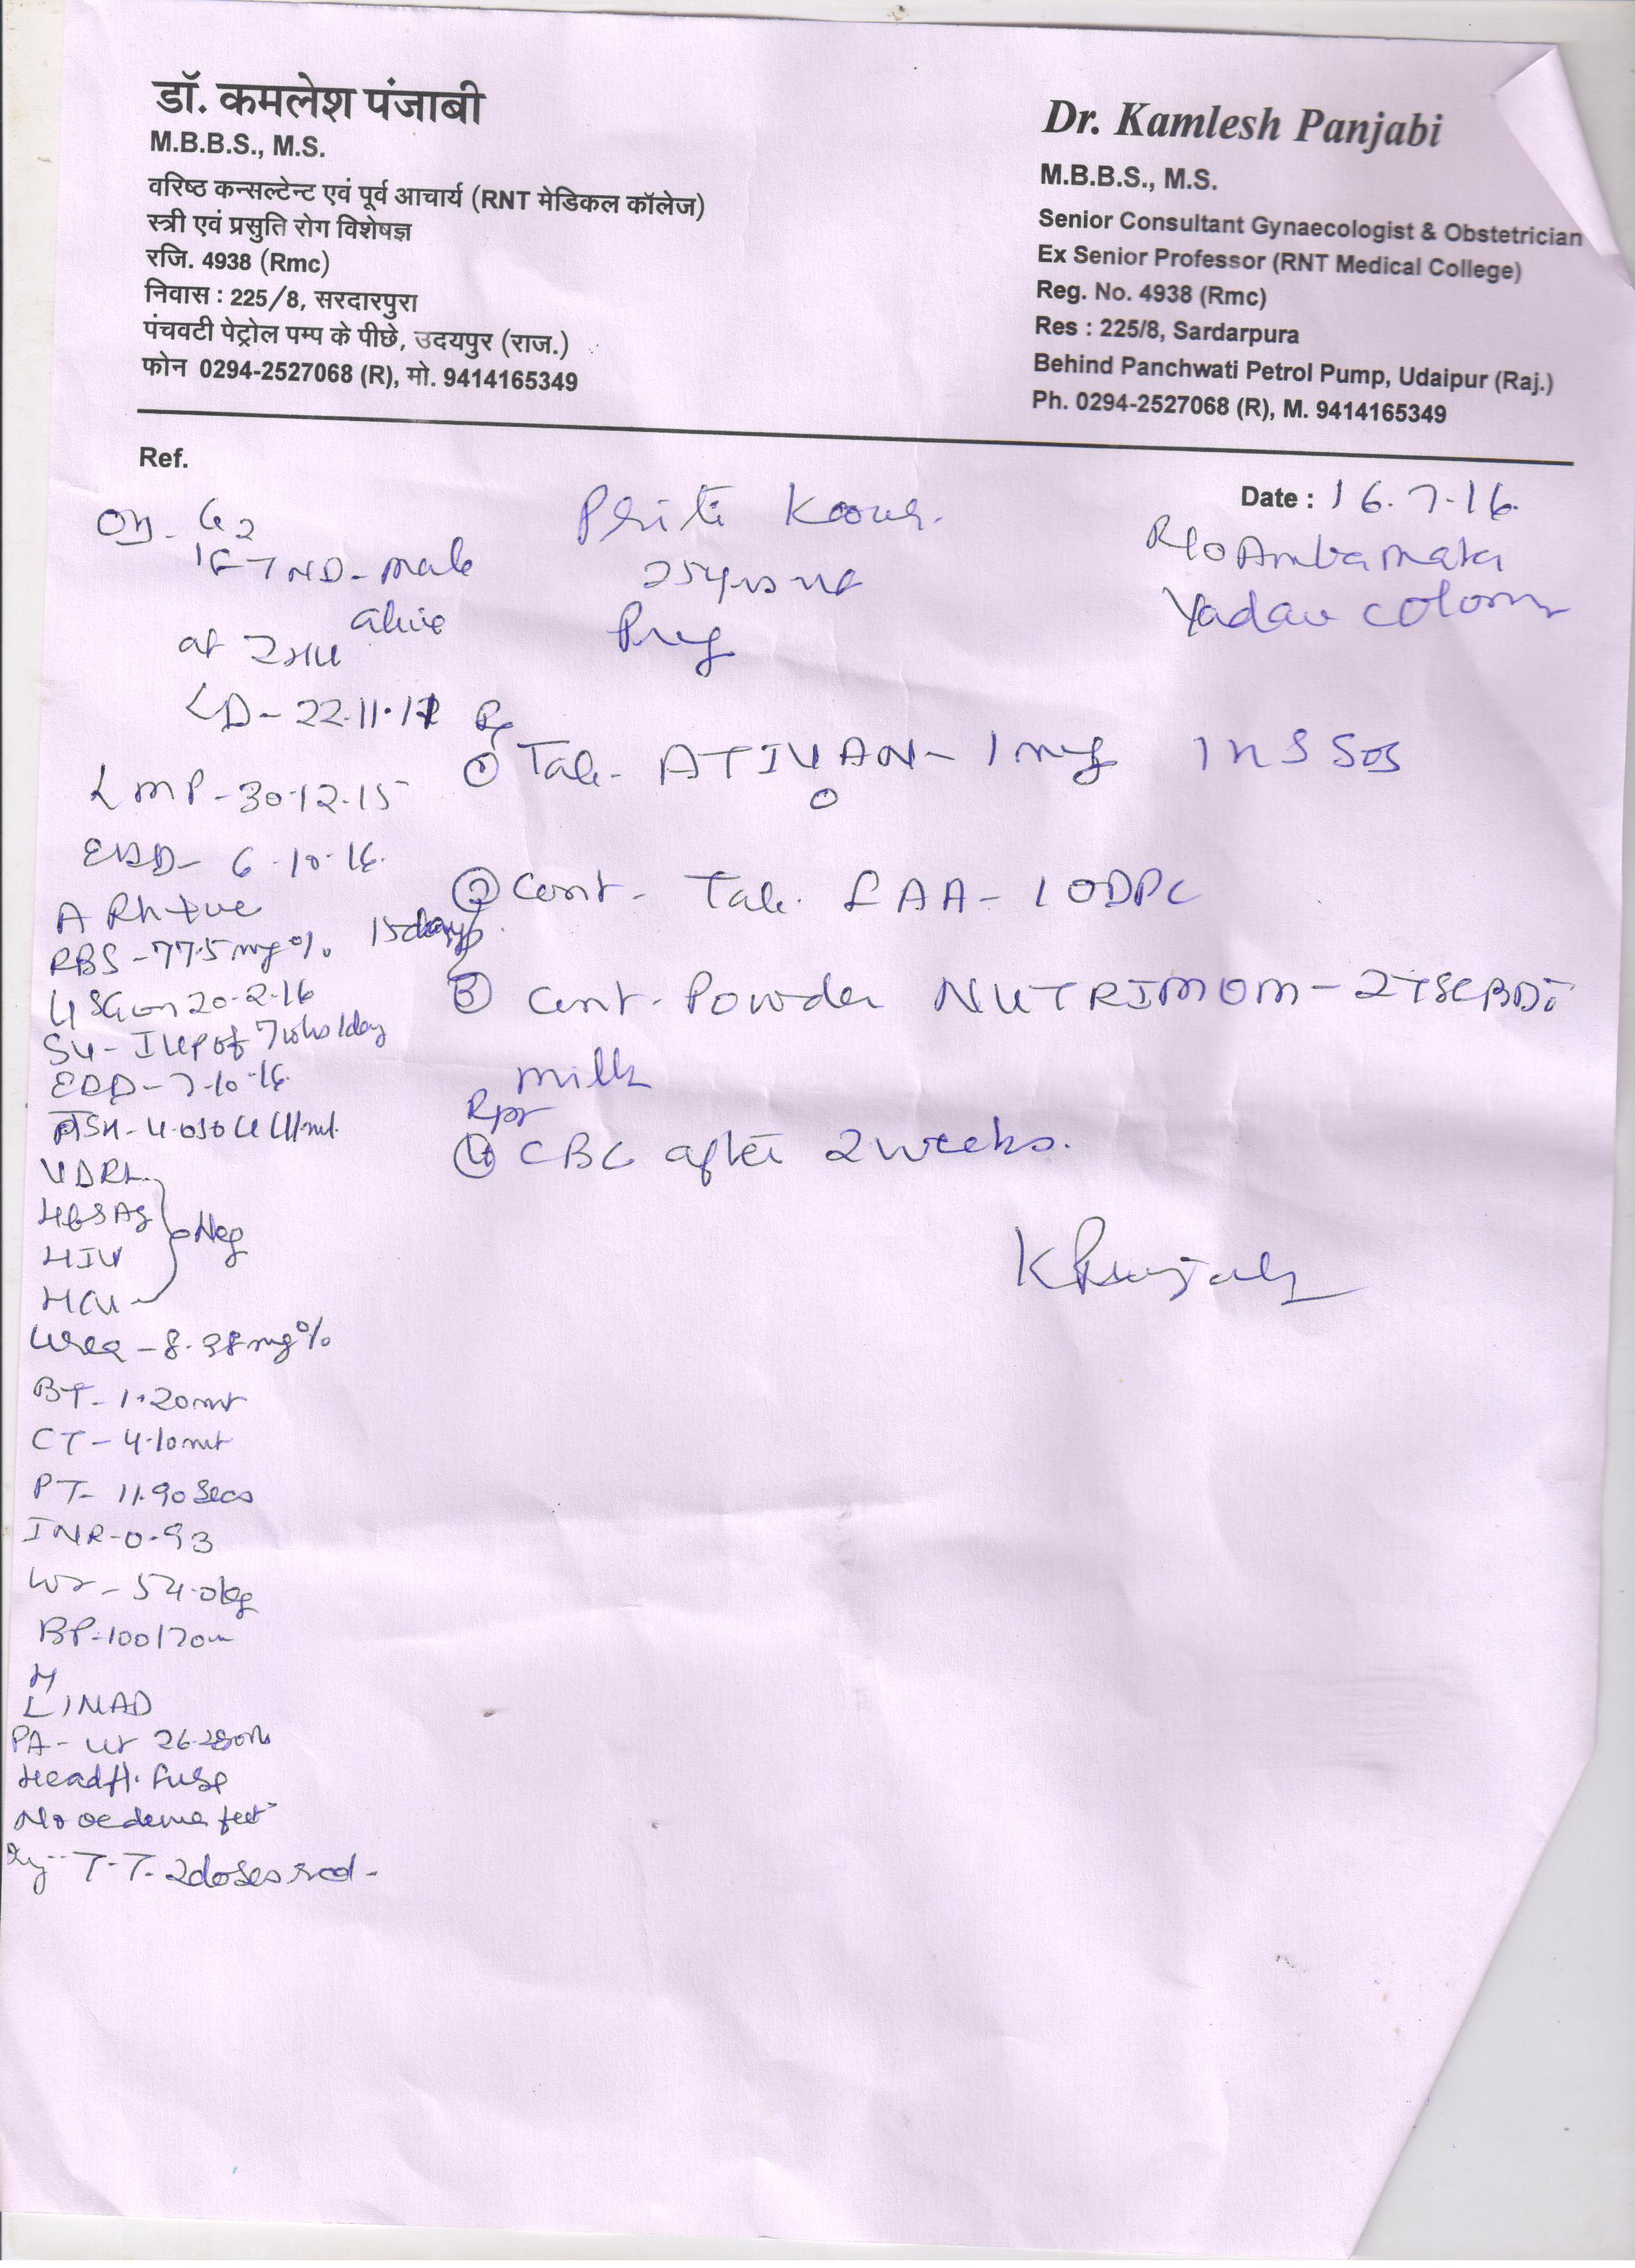 डॉ. कमलेश पंजाबी
M.B.B.S., M.S.
वरिष्ठ कन्सल्टेन्ट एवं पूर्व आचार्य (RNT मेडिकल कॉलेज)
स्त्री एवं प्रसुति रोग विशेषज्ञ
रजि. 4938 (Rmc)
निवास : 225/8, सरदारपुरा
पंचवटी पेट्रोल पम्प के पीछे, उदयपुर (राज.)
फोन 0294-2527068 (R), मो. 9414165349
Dr. Kamlesh Panjabi
M.B.B.S., M.S.
Senior Consultant Gynaecologist & Obstetrician
Ex Senior Professor (RNT Medical College)
Reg. No. 4938 (Rmc)
Res : 225/8, Sardarpura
Behind Panchwati Petrol Pump, Udaipur (Raj.)
Ph. 0294-2527068 (R), M. 9414165349
Ref.
Date : 16.7.16.
R/o Ambamata
Yadav colony
Priti
25yrs
Preg
G2
1FTND-male
alive
at
LD-22.11.11
LMP-30.12.15
EDD- 6.10.16.
A Rh+ve
RBS-77.5mg%
USG on 20.2.16
IUP of 7wks 1day
EDD-7.10.16.
TSH-4.030
VDRL
HBSAg
HIV
HCV
Neg
Urea-8.98mg%
BT-1.20mt
CT-4.10mt
PT-11.90Secs
INR-0.93
Wt-54.0kg
BP-100/70
H
L/NAD
PA-ut 26-28
Head
No oedema feet
T.T. 2doses
Rx
① Tab- ATIVAN-1mg 1HS SOS
② Cont- Tab. FAA-1ODPC
15days
③ Cont-Powder NUTRIMOM-2TSFBD
milk
Rpt
④ CBC after 2weeks.
KPunjabi